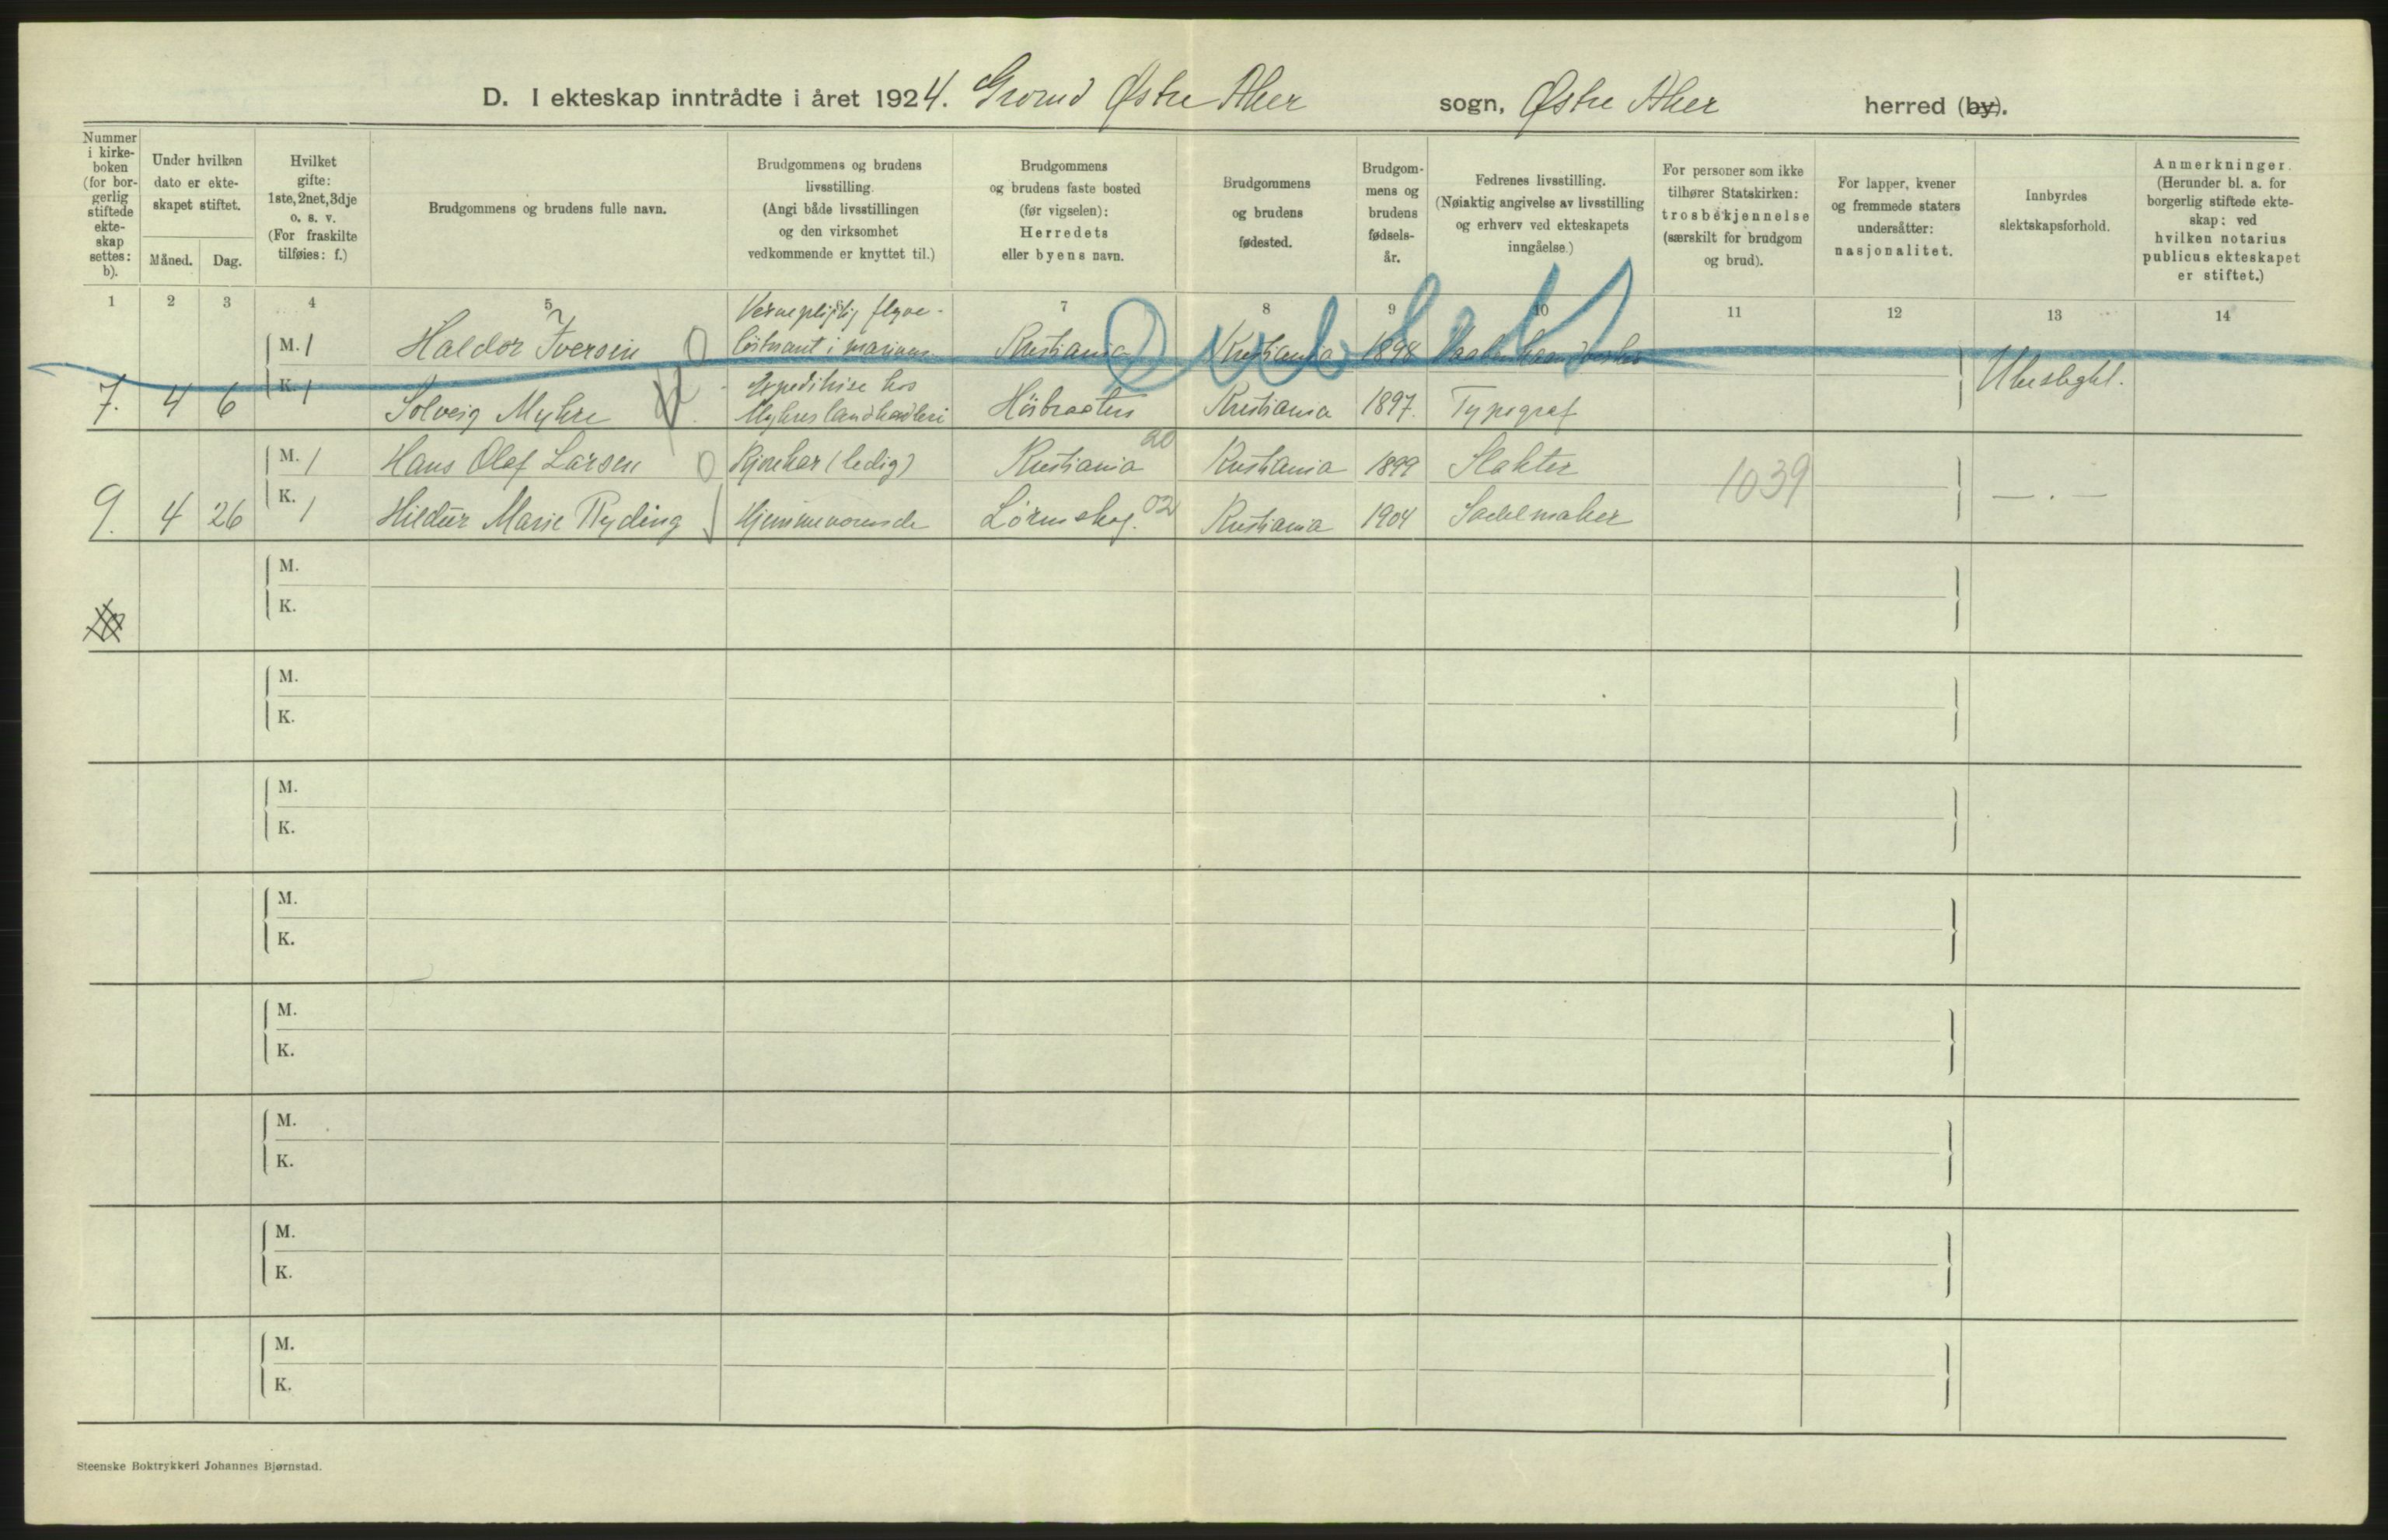 D. I ekteskap inntrådte i året 1924. Grorud Østre Aker sogn, Østre Aker herred (by).
Nummer i kirkeboken (for borgerlig stiftede ekteskap settes: b).
Under hvilken dato er ekteskapet stiftet.
Måned. Dag.
Hvilket gifte: 1ste, 2net, 3dje o. s. v. (For fraskilte tilføies: f.)
Brudgommens og brudens fulle navn.
Brudgommens og brudens livsstilling. (Angi både livsstillingen og den virksomhet vedkommende er knyttet til.)
Brudgommens og brudens faste bosted (før vigselen): Herredets eller byens navn.
Brudgommens og brudens fødested.
Brudgommens og brudens fødselsår.
Fedrenes livsstilling. (Nøiaktig angivelse av livsstilling og erhverv ved ekteskapets inngåelse.)
For personer som ikke tilhører Statskirken: trosbekjennelse (særskilt for brudgom og brud).
For lapper, kvener og fremmede staters undersåtter: nasjonalitet.
Innbyrdes slektskapsforhold.
Anmerkninger. (Herunder bl. a. for borgerlig stiftede ekteskap: ved hvilken notarius publicus ekteskapet er stiftet.)
1 2 3 4 5 6 7 8 9 10 11 12 13 14
M. 1 Haldor Iversen Vernepligtig flyve-
løitnant i marinen Kristiania Kristiania 1898
7. 4 6 K. 1 Solveig Myhre Expeditrise hos
Myhres landhandleri Høibraaten Kristiania 1897. Typograf Ubeslegtet.
M. 1 Hans Olaf Larsen Kjørekar (ledig) Kristiania 20 Kristiania 1899 Slakter 1039
9. 4 26 K. 1 Hildur Marie Ryding Hjemmeværende Lørenskog. 02 Kristiania 1904 Sadelmaker — . —
M.
K.
M.
K.
M.
K.
M.
K.
M.
K.
M.
K.
M.
K.
M.
K.
Steenske Boktrykkeri Johannes Bjørnstad.